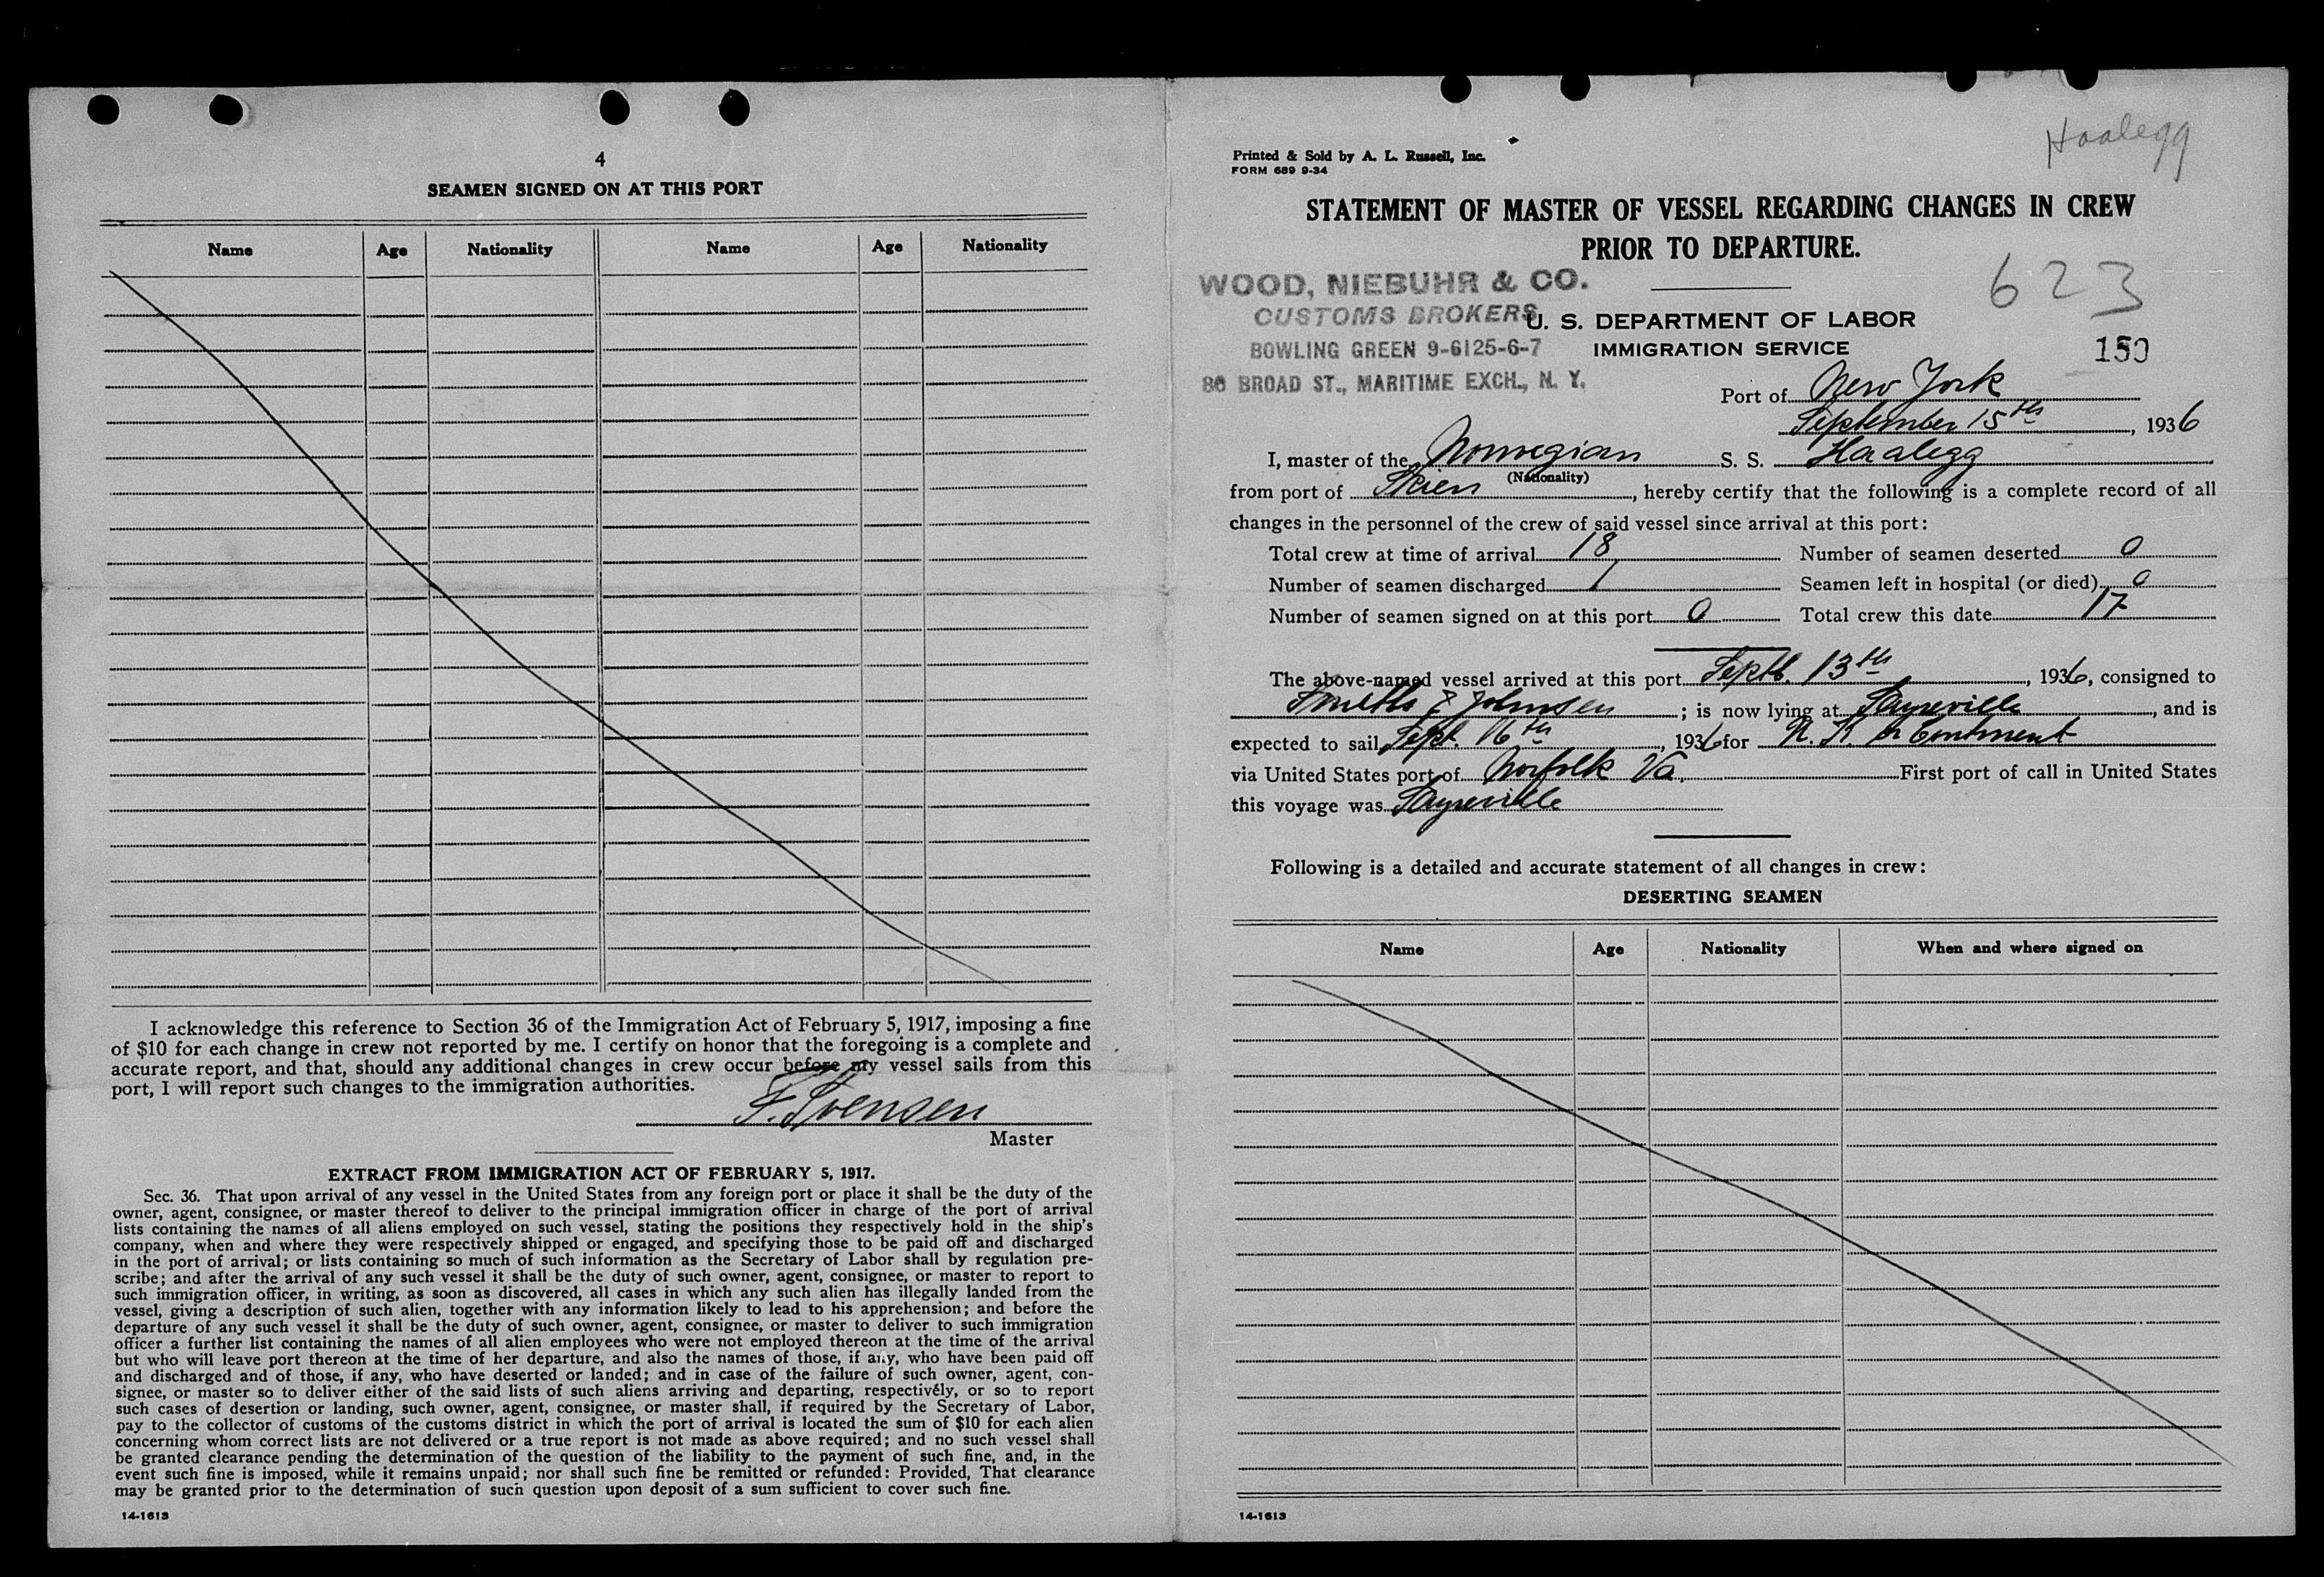 4
SEAMEN SIGNED ON AT THIS PORT
Name Age Nationality Name Age Nationality
I acknowledge this reference to Section 36 of the Immigration Act of February 5, 1917, imposing a fine
of $10 for each change in crew not reported by me. I certify on honor that the foregoing is a complete and
accurate report, and that, should any additional changes in crew occur before my vessel sails from this
port, I will report such changes to the immigration authorities.
F. Svensen
Master
EXTRACT FROM IMMIGRATION ACT OF FEBRUARY 5, 1917.
Sec. 36. That upon arrival of any vessel in the United States from any foreign port or place it shall be the duty of the
owner, agent, consignee, or master thereof to deliver to the principal immigration officer in charge of the port of arrival
lists containing the names of all aliens employed on such vessel, stating the positions they respectively hold in the ship's
company, when and where they were respectively shipped or engaged, and specifying those to be paid off and discharged
in the port of arrival; or lists containing so much of such information as the Secretary of Labor shall by regulation pre-
scribe; and after the arrival of any such vessel it shall be the duty of such owner, agent, consignee, or master to report to
such immigration officer, in writing, as soon as discovered, all cases in which any such alien has illegally landed from the
vessel, giving a description of such alien, together with any information likely to lead to his apprehension; and before the
departure of any such vessel it shall be the duty of such owner, agent, consignee, or master to deliver to such immigration
officer a further list containing the names of all alien employees who were not employed thereon at the time of the arrival
but who will leave port thereon at the time of her departure, and also the names of those, if any, who have been paid off
and discharged and of those, if any, who have deserted or landed; and in case of the failure of such owner, agent, con-
signee, or master so to deliver either of the said lists of such aliens arriving and departing, respectively, or so to report
such cases of desertion or landing, such owner, agent, consignee, or master shall, if required by the Secretary of Labor,
pay to the collector of customs of the customs district in which the port of arrival is located the sum of $10 for each alien
concerning whom correct lists are not delivered or a true report is not made as above required; and no such vessel shall
be granted clearance pending the determination of the question of the liability to the payment of such fine, and, in the
event such fine is imposed, while it remains unpaid; nor shall such fine be remitted or refunded: Provided, That clearance
may be granted prior to the determination of such question upon deposit of a sum sufficient to cover such fine.
14-1613
Haalegg
Printed & Sold by A. L. Russell, Inc.
FORM 689 9-34
STATEMENT OF MASTER OF VESSEL REGARDING CHANGES IN CREW
PRIOR TO DEPARTURE.
WOOD, NIEBUHR & CO.
CUSTOMS BROKERS
BOWLING GREEN 9-6125-6-7
80 BROAD ST., MARITIME EXCH., N. Y.
623
U. S. DEPARTMENT OF LABOR
IMMIGRATION SERVICE
150
Port of New York
September 15th, 1936
I, master of the Norwegian S. S. Haalegg
(Nationality)
from port of Skien, hereby certify that the following is a complete record of all
changes in the personnel of the crew of said vessel since arrival at this port:
Total crew at time of arrival 18 Number of seamen deserted 0
Number of seamen discharged 1 Seamen left in hospital (or died) 0
Number of seamen signed on at this port 0 Total crew this date 17
The above-named vessel arrived at this port Septb. 13th, 1936, consigned to
Smith & Johnsen; is now lying at Sayreville, and is
expected to sail Sept. 16th, 1936 for Continent
via United States port of Norfolk Va. First port of call in United States
this voyage was Sayreville
Following is a detailed and accurate statement of all changes in crew:
DESERTING SEAMEN
Name Age Nationality When and where signed on
14-1613